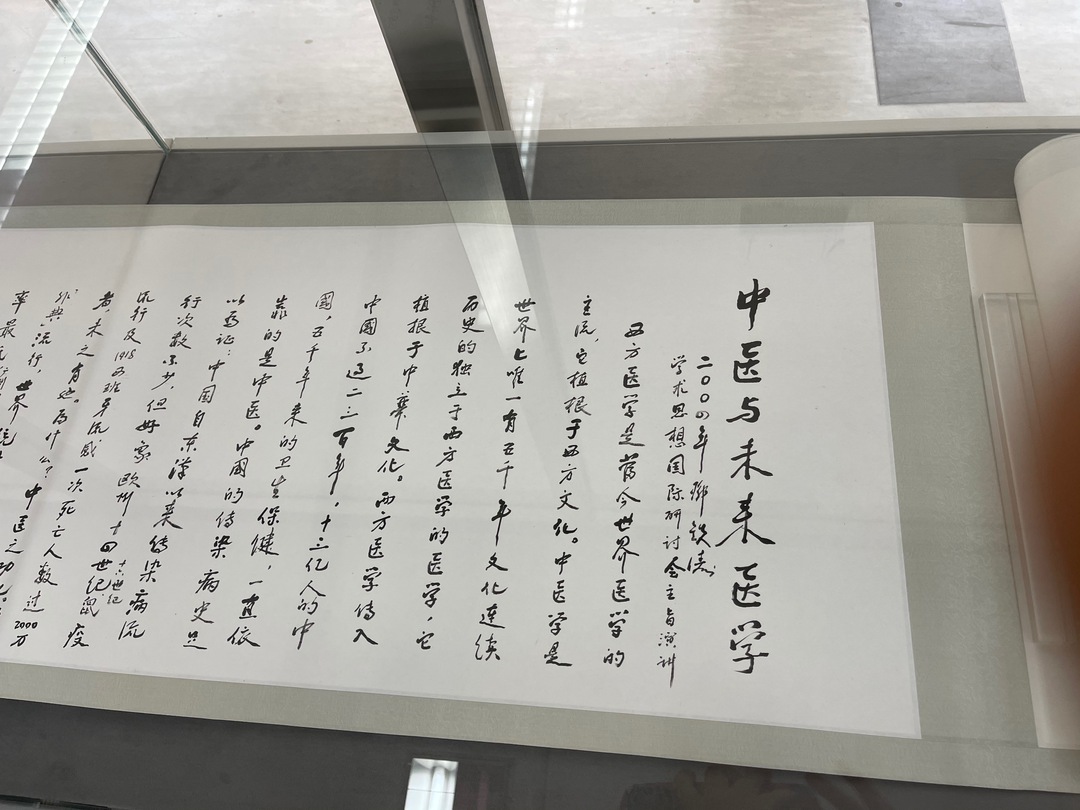 中医与未来医学
二〇〇四年邓铁涛
学术思想国际研讨会主旨演讲
西方医学是当今世界医学的
主流,它植根于西方文化。中医学是
世界上唯一有五千年文化连续
历史的独立于西方医学的医学,它
植根于中华文化。西方医学传入
中國不过二三百年,十三亿人的中
國,五千年来的卫生保健,一直依
靠的是中医。中國的传染病史足
以为证:中国自东漢以来传染病流
行次数不少,但好象欧州十四世纪鼠疫
十六世纪
流行及1918西班牙流感一次死亡人数过2000万
者,未之有也。为什么?中医之功也。
率最
世界